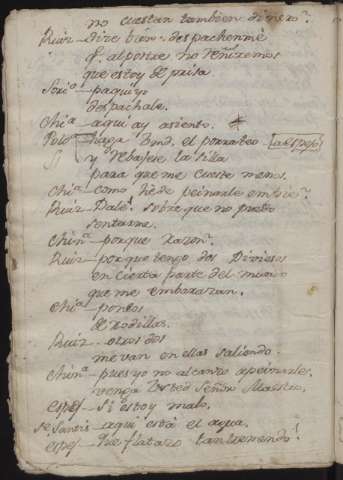 no cuestan tambien dinero?
Ruiz- dire bien: despachenme
q. al postre no reñiremos
que estoy de prisa.
Sorio- paquiyo
despachale.
Chiª- aqui ay asiento.
Polo- haga Vmd. el
y rebajese la silla
para que me cueste menos.
Chiª- como he de peinarle en pie?
Ruiz- Dale! sobre que no puedo
sentarme.
Chinª- porque razon?
Ruiz- porque tengo dos Diviesos
en cierta parte del mundo
que me embarazan.
Chiª- pontos
de rodillas.
Ruiz- otros dos
me van en ellas saliendo.
Chinª- pues yo no alcanzo a peinarle,
venga Usted Señor Maestro,
espej- si estoy malo.
Sª Santis- aqui está el agua.
espej- que flatazo tan tremendo!